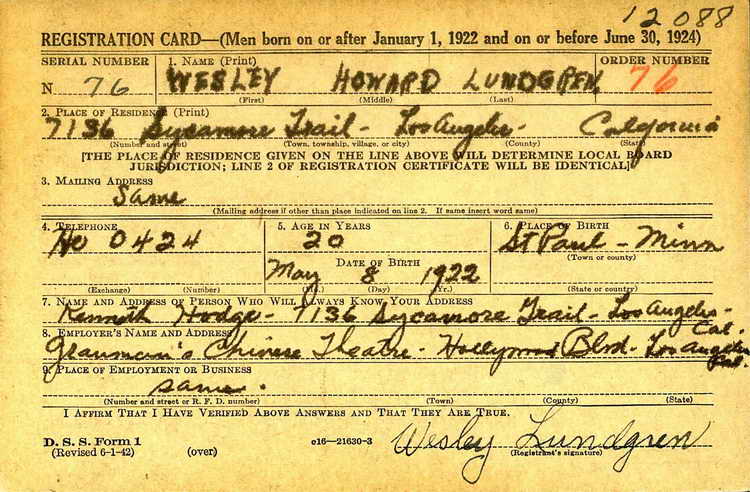 12 088
REGISTRATION CARD—(Men born on or after January 1, 1922 and on or before June 30, 1924)
SERIAL NUMBER 1. NAME (Print) ORDER NUMBER
N 76 WESLEY HOWARD LUNDGREN 76
(First) (Middle) (Last)
2. PLACE OF RESIDENCE (Print)
7136 Sycamore Trail - Los Angeles - California
(Number and street) (Town, township, village, or city) (County) (State)
[THE PLACE OF RESIDENCE GIVEN ON THE LINE ABOVE WILL DETERMINE LOCAL BOARD
JURISDICTION; LINE 2 OF REGISTRATION CERTIFICATE WILL BE IDENTICAL]
3. MAILING ADDRESS
Same
(Mailing address if other than place indicated on line 2. If same insert word same)
4. TELEPHONE 5. AGE IN YEARS 6. PLACE OF BIRTH
He 0424 20 St Paul - Minn
DATE OF BIRTH (Town or county)
May 8 1922
(Exchange) (Number) (Mo.) (Day) (Yr.) (State or country)
7. NAME AND ADDRESS OF PERSON WHO WILL ALWAYS KNOW YOUR ADDRESS
Kenneth Hodge - 7136 Sycamore Trail - Los Angeles - Cal.
8. EMPLOYER'S NAME AND ADDRESS
Grauman's Chinese Theatre - Hollywood Blvd - Los Angeles Cal.
9. PLACE OF EMPLOYMENT OR BUSINESS
same.
(Number and street or R. F. D. number) (Town) (County) (State)
I AFFIRM THAT I HAVE VERIFIED ABOVE ANSWERS AND THAT THEY ARE TRUE.
D. S. S. Form 1 e16—21630-3 Wesley Lundgren
(Revised 6-1-42) (over) (Registrant's signature)